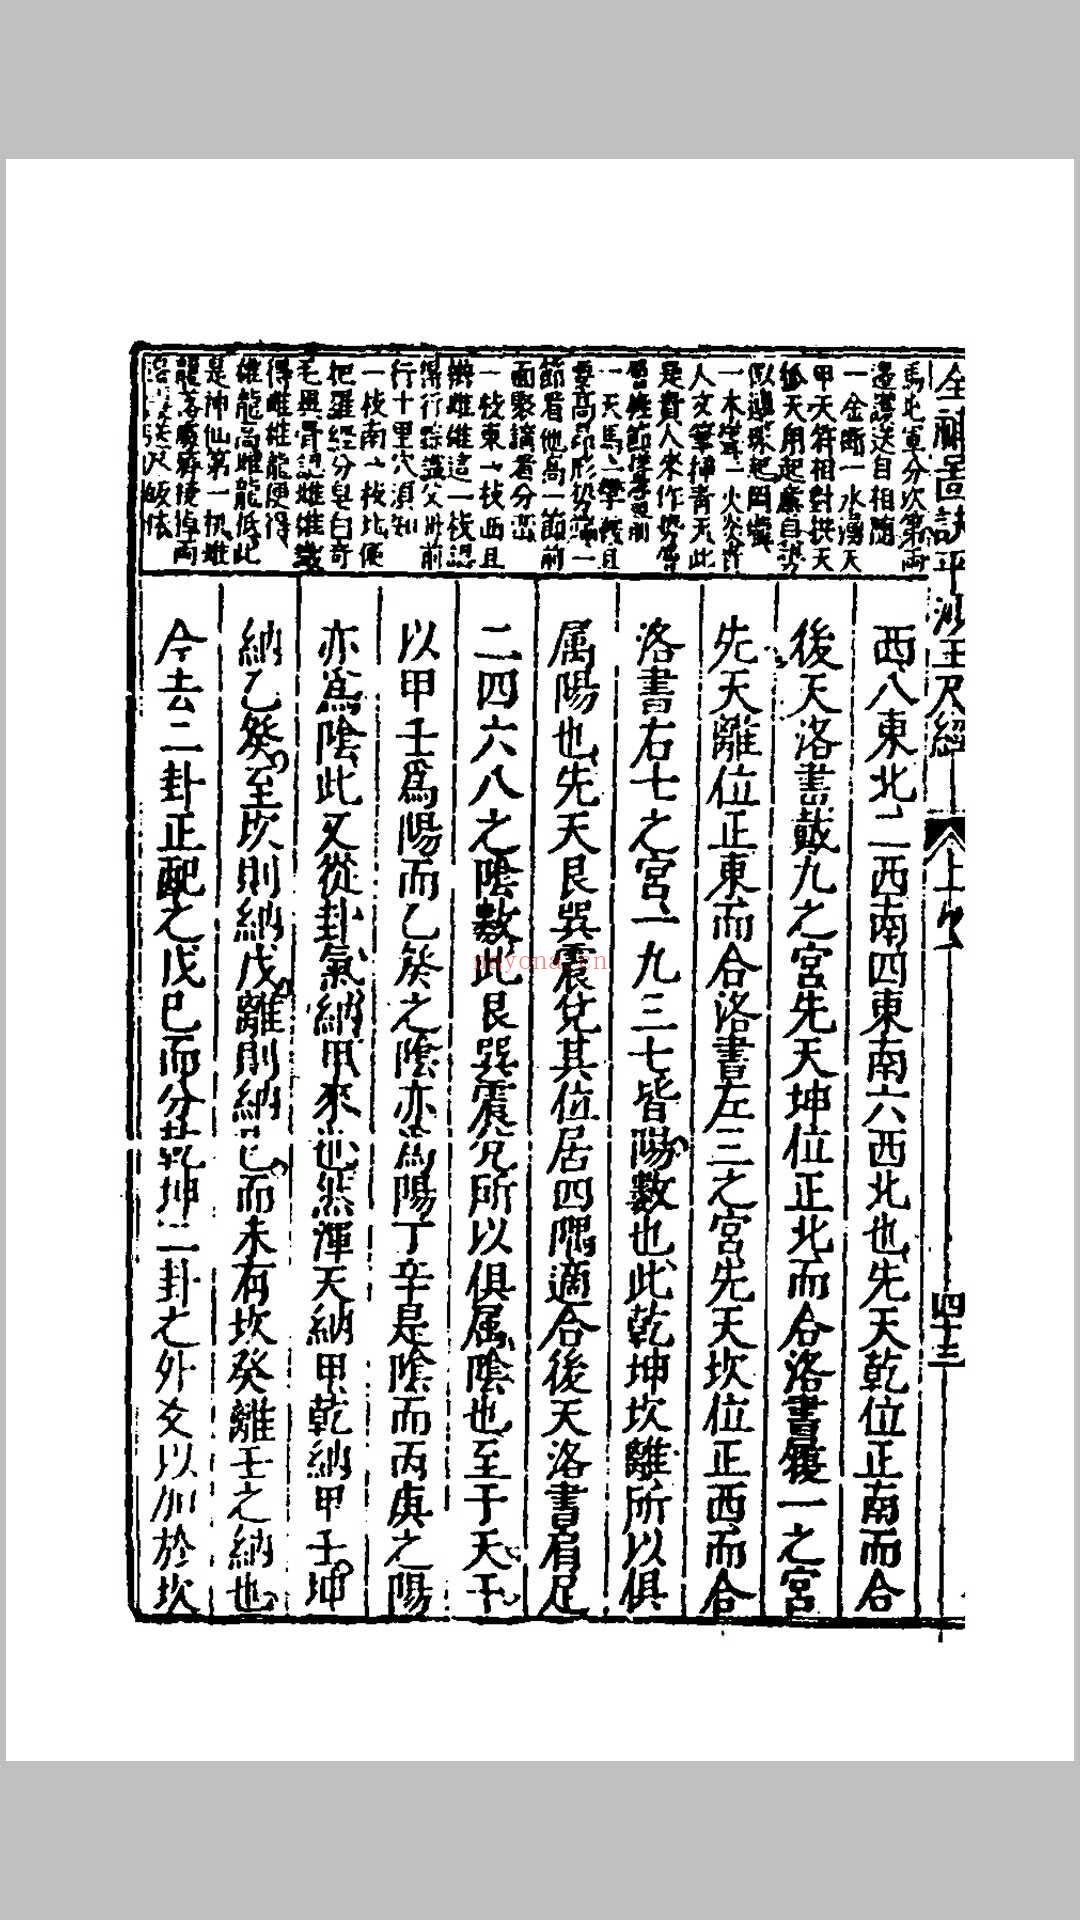 全補圖訣平沙玉尺經
上
四十三
西八東北二西南四東南六西北也先天乾位正南而合
後天洛書戴九之宮先天坤位正北而合洛書履一之宮
先天離位正東而合洛書左三之宮先天坎位正西而合
洛書右七之宮一九三七皆陽數也此乾坤坎離所以俱
属陽也先天艮巽震兌其位居四隅適合後天洛書肩足
二四六八之陰數此艮巽震兌所以俱属陰也至于天干
以甲壬爲陽而乙癸之陰亦爲陽丁辛是陰而丙庚之陽
亦爲陰此又從卦氣納甲來也然渾天納甲乾納甲壬坤
納乙癸至坎則納戊離則納己而未有坎癸離壬之納也
今去二卦正配之戊己而分乾坤二卦之外爻以加於坎
馬北軍分次第兩
邊護送自相隨
一金斷一水湧天
甲天符相對拱天
天用起
珠起
一木一火炎
人文筆揷靑天此
是貴人來作
一天馬一且
要高昂形一
節看他高一節前
面聚講看分
一枝東一枝西且
辦雌雄這一枝
得行踪前
行十里穴須知
一枝南一枝北便
把羅經分皂白奇
毛異骨認雌雄
得雌雄龍便得
雄龍高雌龍低此
是神仙第一机雌
龍後掉兩